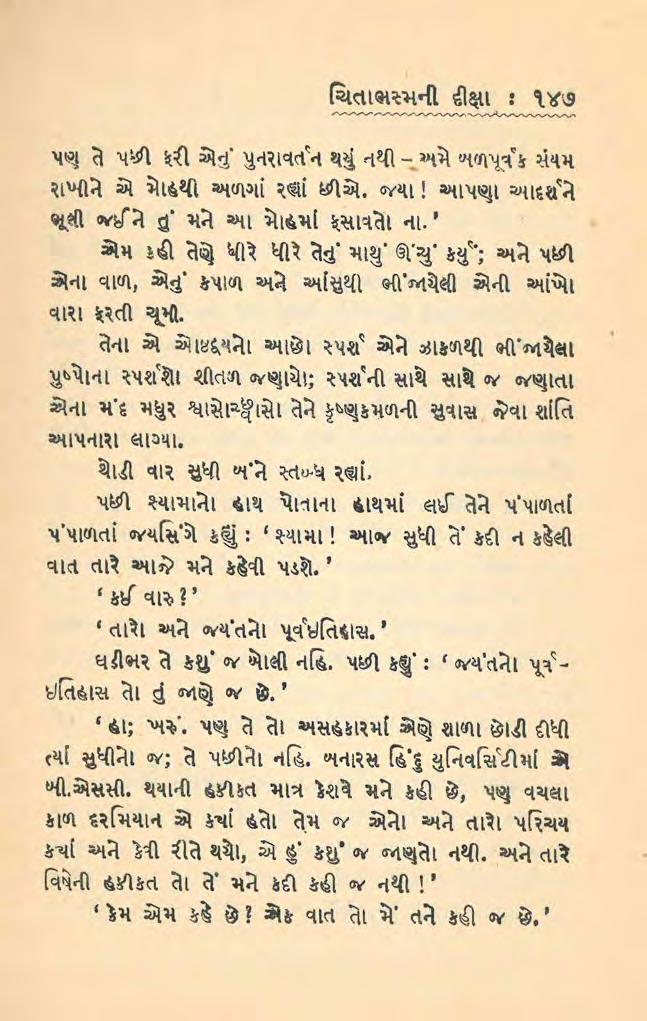 ચિતાભસ્મની દીક્ષા : ૧૪૭
પણ તે પછી ફરી એનું પુનરાવર્તન થયું નથી – અમે બળપૂર્વક સંયમ
રાખીને એ મોહથી અળગાં રહ્યાં છીએ. જયા! આપણા આદર્શને
ભૂલી જઈને તું મને આ મોહમાં ફસાવતો ના.'
એમ કહી તેણે ધીરે ધીરે તેનું માથું ઊંચું કર્યું; અને પછી
એના વાળ, એનું કપાળ અને આંસુથી ભીંજાયેલી એની આંખો
વારા ફરતી ચૂમી.
તેના એ ઓષ્ઠદ્વયનો આછો સ્પર્શ એને ઝાકળથી ભીંજાયેલા
પુષ્પોના સ્પર્શશો શીતળ જણાયો; સ્પર્શની સાથે સાથે જ જણાતા
એના મંદ મધુર શ્વાસોચ્છ્વાસો તેને કૃષ્ણકમળની સુવાસ જેવા શાંતિ
આપનારા લાગ્યા.
થોડી વાર સુધી બંને સ્તબ્ધ રહ્યાં.
પછી શ્યામાનો હાથ પોતાના હાથમાં લઈ તેને પંપાળતાં
પંપાળતાં જયસિંગે કહ્યું : ‘ શ્યામા! આજ સુધી તેં કદી ન કહેલી
વાત તારે આજે મને કહેવી પડશે.’
‘ કઈ વારુ?’
‘ તારો અને જયંતનો પૂર્વઇતિહાસ.’
ઘડીભર તે કશું જ બોલી નહિ. પછી કહ્યું : ‘ જયંતનો પૂર્વ-
ઇતિહાસ તો તું જાણે જ છે.’
‘ હા; ખરું. પણ તે તો અસહકારમાં એણે શાળા છોડી દીધી
ત્યાં સુધીનો જ; તે પછીનો નહિ. બનારસ હિંદુ યુનિવર્સિટીમાં એ
બી.એસસી. થયાની હકીકત માત્ર કેશવે મને કહી છે, પણ વચલા
કાળ દરમિયાન એ ક્યાં હતો તેમ જ એનો અને તારો પરિચય
ક્યાં અને કેવી રીતે થયો, એ હું કશું જ જાણતો નથી. અને તારે
વિષેની હકીકત તો તેં મને કદી કહી જ નથી!’
‘ કેમ એમ કહે છે? એક વાત તો મેં તને કહી જ છે.’